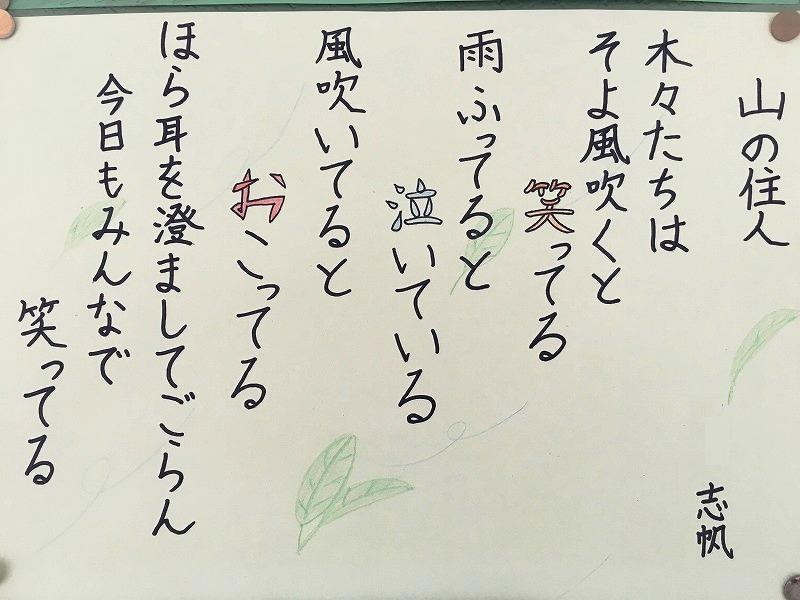 山の住人
志帆
木々たちは
そよ風吹くと
笑ってる
雨ふってると
泣いている
風吹いてると
おこってる
ほら耳を澄ましてごらん
今日もみんなで
笑ってる